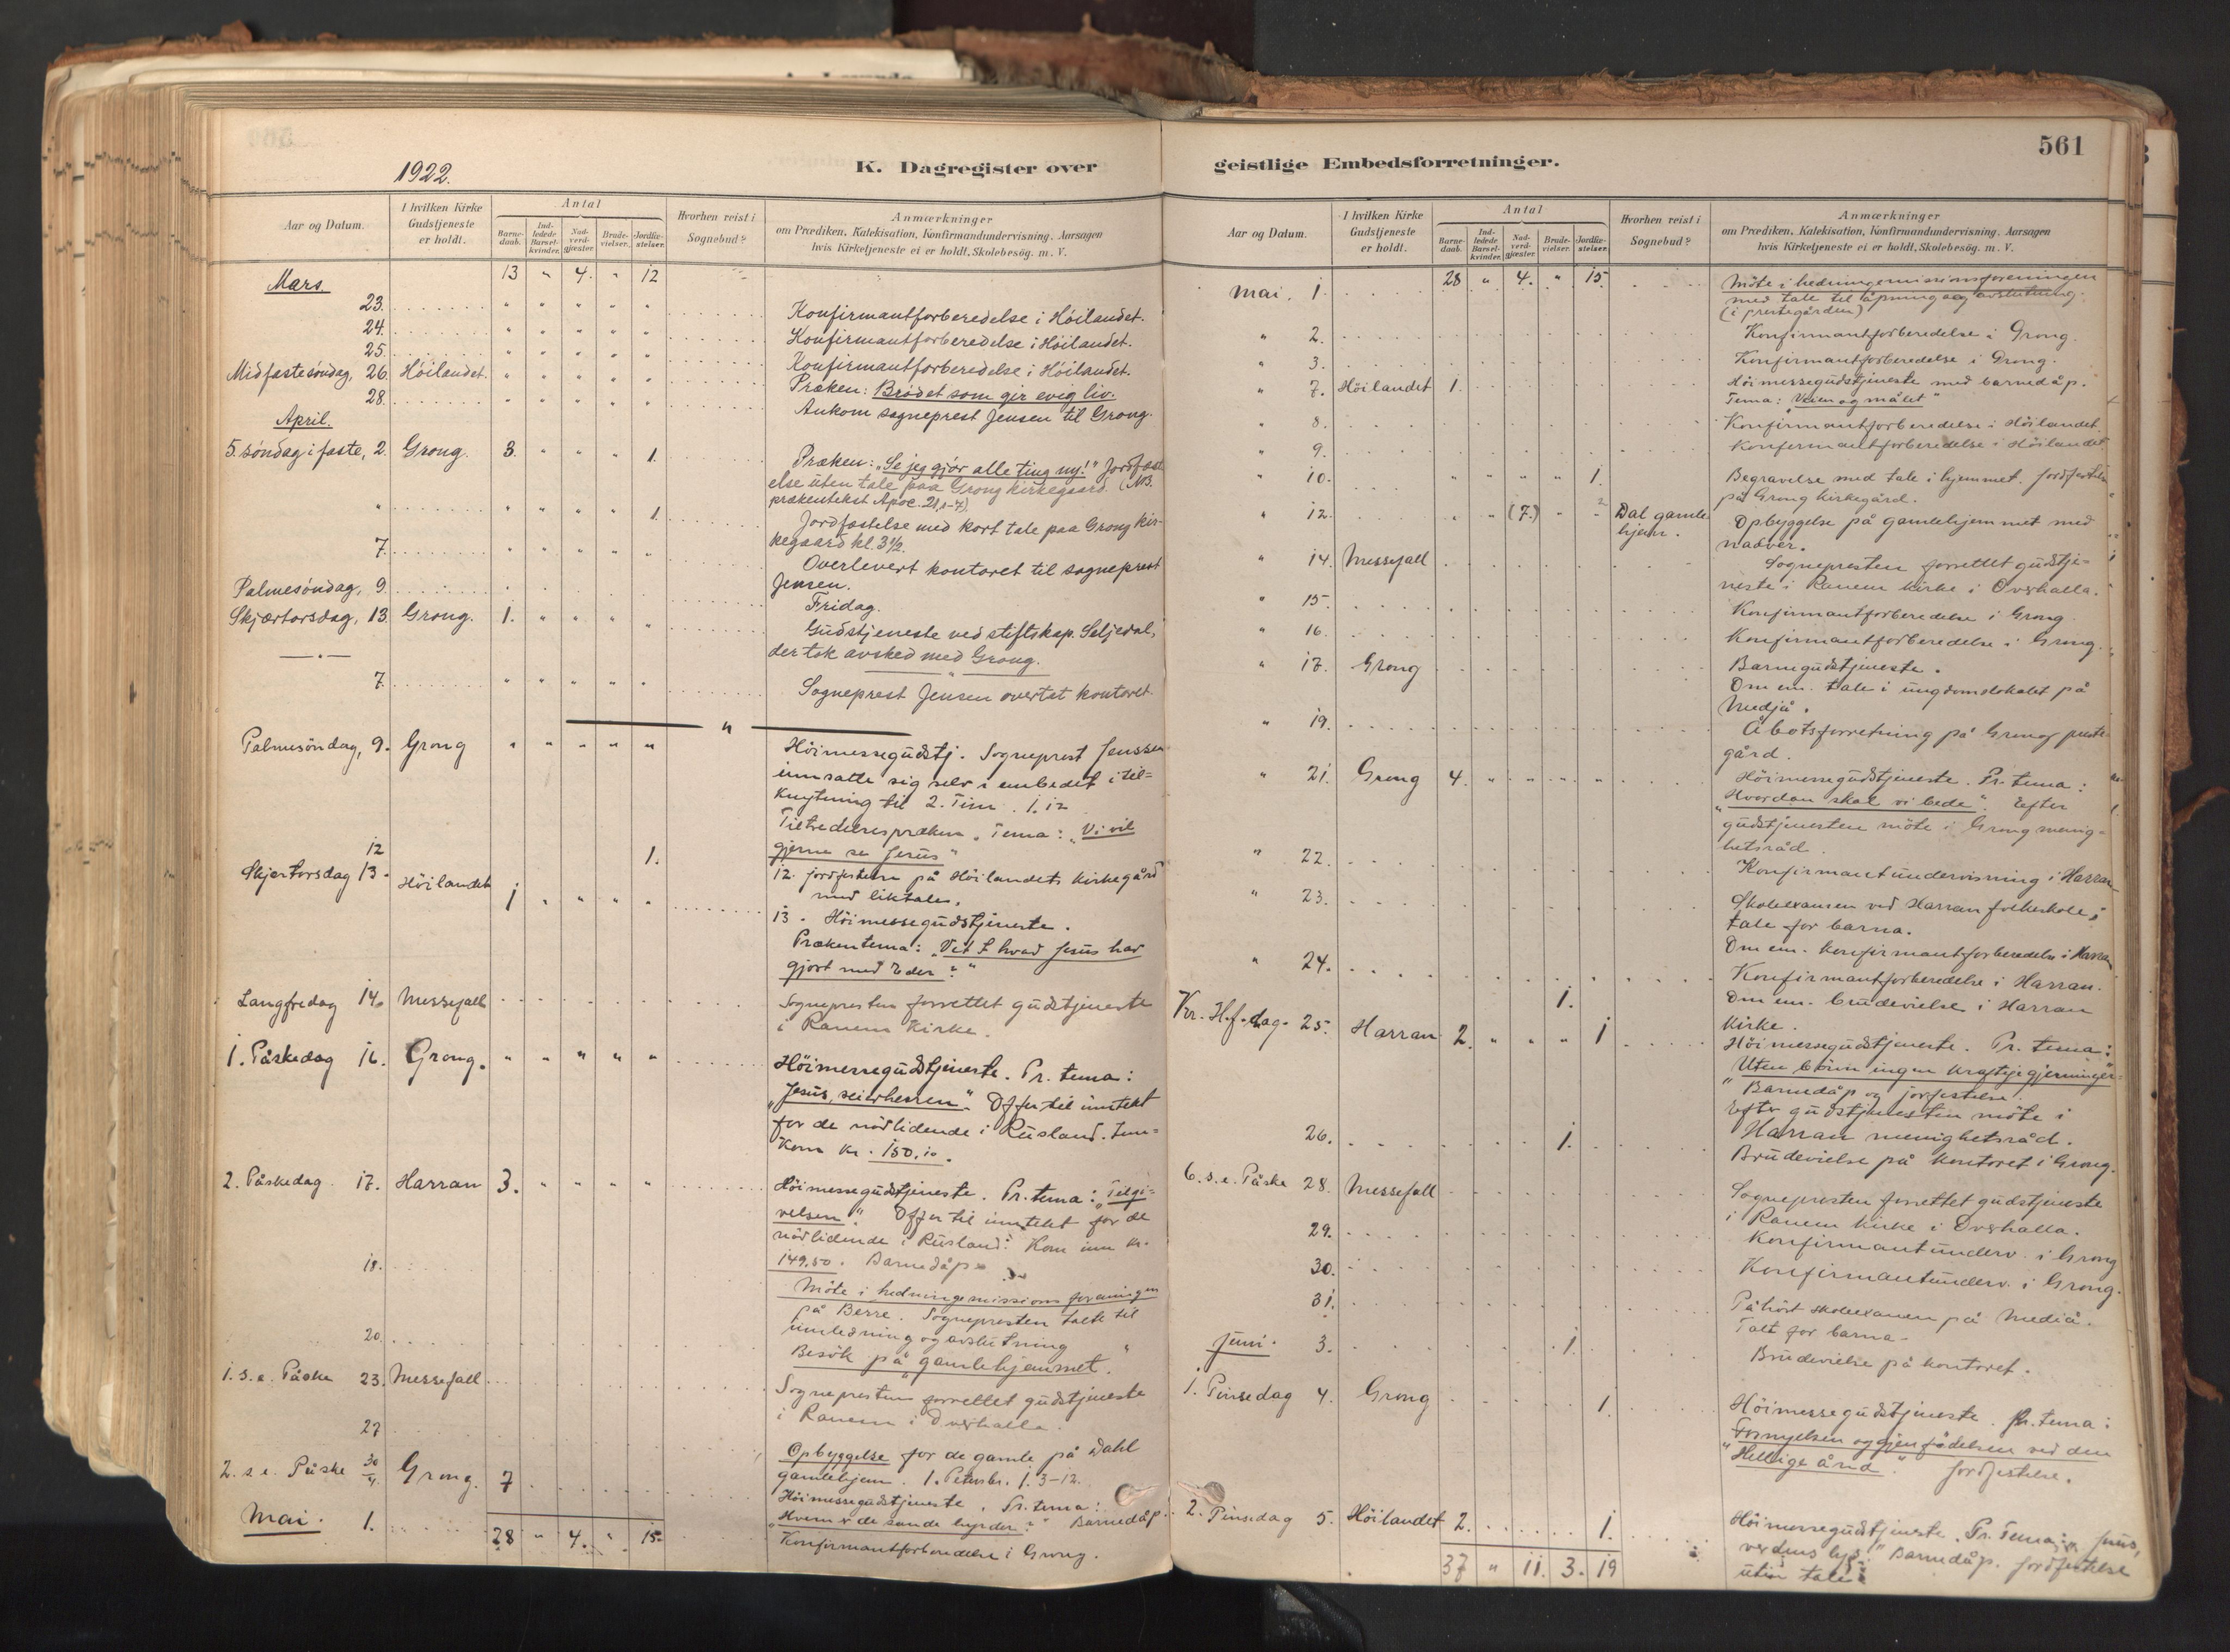 561
1922.
K. Dagregister over
geistlige Embedsforretninger.
Aar og Datum.
I hvilken Kirke Gudstjeneste er holdt.
Antal
Barne-daab.
Ind-ledede Barsel-kvinder.
Nad-verd-gjæster.
Brude-vielser.
Jordfæ-stelser.
Hvorhen reist i Sognebud?
Anmærkninger
om Prædiken, Katekisation, Konfirmandundervisning, Aarsagen
hvis Kirketjeneste ei er holdt, Skolebesög. m. V.
Mars. 13 " 4. " 12
23. Konfirmantforberedelse i Höilandet.
24. Konfirmantforberedelse i Höilandet.
25. Konfirmantforberedelse i Höilandet.
Midfastesöndag, 26. Höilandet. Præken: Brödet som gir evig liv.
28. Ankom sogneprest Jensen til Grong.
April.
5. söndag i faste, 2. Grong. 3. " " " 1. Præken: „Se jeg gjör alle ting ny!" Jordfæst
else uten tale paa Grong kirkegaard. (NB.
prækentekst Apoc. 21, 1-7)
" 1. Jordfæstelse med kort tale paa Grong kir-
kegaard kl. 3½.
7. Overlevert kontoret til sogneprest
Jensen.
Palmesöndag, 9. Fridag.
Skjærtorsdag, 13. Grong. 1. Gudstjeneste ved stiftskap. Seljedal,
der tok avsked med Grong.
7. Sogneprest Jensen overtat kontoret.
Palmesöndag, 9. Grong Höimessegudstj. Sogneprest Jenssen
innsatte sig selv i embedet i til=
knytning til 2. Tim. 1. 12
Tiltredelsespræken. Tema: „Vi vil
gjerne se Jesus"
12 1. 12. jordfestelse på Höilandets kirkegård
med liktale.
Skjertorsdag 13. Höilandet 1 13. Höimessegudstjeneste.
Prækentema: „Vet I hvad Jesus har
gjort med Eder?"
Langfredag 14. Messefall Sognepresten forrettet gudstjeneste
i Ranem Kirke.
1. Påskedag 16. Grong. Höimessegudstjeneste. Pr. tema:
„Jesus, seierherren". Offer til inntekt
for de nödlidende i Rusland. Inn=
kom kr. 150.10.
2. Påskedag. 17. Harran 3. Höimessegudstjeneste. Pr. tema: „Tilgi=
velsen". Offer til inntekt for de
nödlidende i Rusland. Kom inn kr.
149.50. Barnedåp.
18. Möte i hedningemissionsforeningen
på Berre. Sognepresten talte til
innledning og avslutning
20. Besök på gamlehjemmet.
1. s. e. Påske 23. Messefall Sognepresten forrettet gudstjeneste
i Ranem i Overhalla.
27 Opbyggelse for de gamle på Dahl
gamlehjem. 1. Petersbr. 1. 3-12.
2. s. e. Påske 30/4 Grong. 7 Höimessegudstjeneste. Pr. tema:
„Hvem er de sande hyrder?" Barnedåp.
Mai. 1. Konfirmantforberedelse i Grong.
28 " 4. " 15.
Aar og Datum.
I hvilken Kirke Gudstjeneste er holdt.
Antal
Barne-daab.
Ind-ledede Barsel-kvinder.
Nad-verd-gjæster.
Brude-vielser.
Jordfæ-stelser.
Hvorhen reist i Sognebud?
Anmærkninger
om Prædiken, Katekisation, Konfirmandundervisning, Aarsagen
hvis Kirketjeneste ei er holdt, Skolebesög. m. V.
Mai. 1. 28 " 4. " 15. Möte i hedningemissionsforeningen
med tale til åpning og avslutning.
(i prestegården)
" 2. Konfirmantforberedelse i Grong.
" 3. Konfirmantforberedelse i Grong.
" 7. Höilandet 1. Höimessegudstjeneste med barnedåp.
Tema: „Veien og målet"
" 8. Konfirmantforberedelse i Höilandet.
" 9. Konfirmantforberedelse i Höilandet.
" 10. 1. Begravelse med tale i hjemmet. Jordfestelse
på Grong kirkegård.
" 12. (7.) Dal gamle
hjem. Opbyggelse på gamlehjemmet med
nadver.
" 14. Messefall Sognepresten forrettet gudstje=
neste i Ranem kirke i Overhalla.
" 15. Konfirmantforberedelse i Grong.
" 16. Konfirmantforberedelse i Grong.
" 17. Grong Barnegudstjeneste.
Om em. tale i ungdomslokalet på
Mediå.
" 19. Åbotsforretning på Grong preste
gård.
" 21. Grong 4. Höimessegudstjeneste. Pr. tema:
„Hvordan skal vi bede". Efter
gudstjenesten möte i Grong menig=
hetsråd.
" 22. Konfirmantundervisning i Harran
" 23. Skoleexamen ved Harran folkeskole;
tale for barna.
Om em. konfirmantforberedelse i Harran
" 24. Konfirmantforberedelse i Harran.
1. Om em. brudevielse i Harran
Kirke.
Kr. H.f. dag. 25. Harran 2. 1 Höimessegudstjeneste. Pr. tema:
„Uten bönn ingen kraftgjerninger"
Barnedåp og jorfestelse.
Efter gudstjenesten möte i
Harran menighetsråd.
26. 1. Brudevielse på kontoret i Grong.
6. s. e. Påske 28. Messefall Sognepresten forrettet gudstjeneste
i Ranem kirke i Overhalla.
29. Konfirmantunderv. i Grong
30. Konfirmantunderv. i Grong.
31. Påhört skoleexamen på Mediå.
Talt for barna.
Juni. 3. 1. Brudevielse på kontoret.
1. Pinsedag 4. Grong 1. Höimessegudstjeneste. Pr. tema:
„Fornyelsen og gjenfödelsen ved den
Hellige ånd." Jordfestelse.
2. Pinsedag 5. Höilandet 2. 1. Höimessegudstjeneste. Pr. Tema: „Jesus,
verdens lys." Barnedåp. Jordfestelse
uten tale.
37 " 11. 3. 19